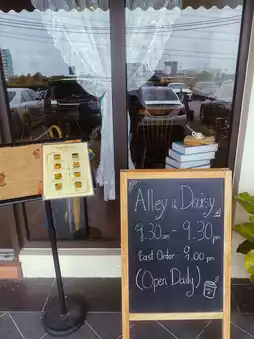 Alley & Daisy
9.30am - 9.30pm
Last Order 9.00pm
(Open Daily)